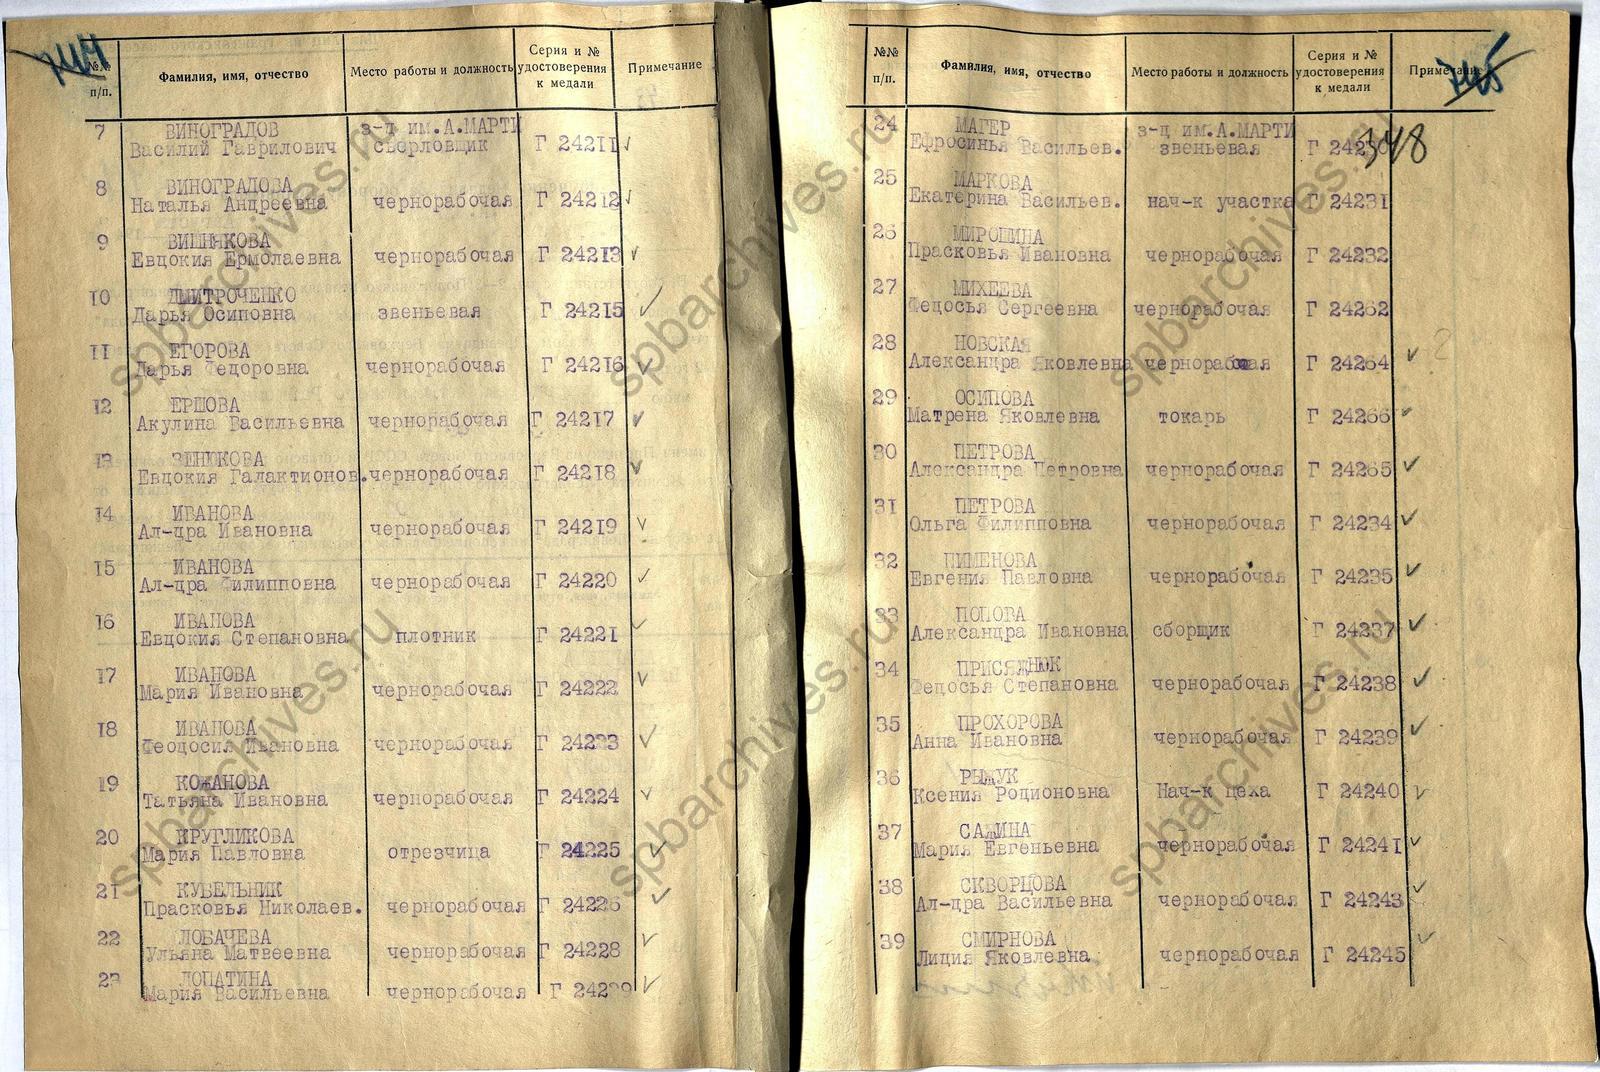 744
№№ п/п. Фамилия, имя, отчество Место работы и должность Серия и № удостоверения к медали Примечание
7 ВИНОГРАДОВ з-д им.А.МАРТИ
Василий Гаврилович сверловщик Г 24211
8 ВИНОГРАДОВА
Наталья Андреевна чернорабочая Г 24212
9 ВИШНЯКОВА
Евдокия Ермолаевна чернорабочая Г 24213
10 ДМИТРОЧЕНКО
Дарья Осиповна звеньевая Г 24215
11 ЕГОРОВА
Дарья Федоровна чернорабочая Г 24216
12 ЕРШОВА
Акулина Васильевна чернорабочая Г 24217
13 ЗЕНЮКОВА
Евдокия Галактионов. чернорабочая Г 24218
14 ИВАНОВА
Ал-дра Ивановна чернорабочая Г 24219
15 ИВАНОВА
Ал-дра Филипповна чернорабочая Г 24220
16 ИВАНОВА
Евдокия Степановна плотник Г 24221
17 ИВАНОВА
Мария Ивановна чернорабочая Г 24222
18 ИВАНОВА
Феодосия Ивановна чернорабочая Г
19 КОЖАНОВА
Татьяна Ивановна чернорабочая Г 24224
20 КРУГЛИКОВА
Мария Павловна отрезчица Г 24225
21 КУБЕЛЬНИК
Прасковья Николаев. чернорабочая Г 24226
22 ЛОБАЧЕВА
Ульяна Матвеевна чернорабочая Г 24228
23 ЛОПАТИНА
Мария Васильевна чернорабочая Г 24229
745
№№ п/п. Фамилия, имя, отчество Место работы и должность Серия и № удостоверения к медали Примечание
348
24 МАГЕР з-д им.А.МАРТИ
Ефросинья Васильев. звеньевая Г 24230
25 МАРКОВА
Екатерина Васильев. нач-к участка Г 24231
26 МИРОШИНА
Прасковья Ивановна чернорабочая Г 24232
27 МИХЕЕВА
Федосья Сергеевна чернорабочая Г 24262
28 НОВСКАЯ
Александра Яковлевна чернорабочая Г 24264
29 ОСИПОВА
Матрена Яковлевна токарь Г 24266
30 ПЕТРОВА
Александра Петровна чернорабочая Г 24265
31 ПЕТРОВА
Ольга Филипповна чернорабочая Г 24234
32 ПИМЕНОВА
Евгения Павловна чернорабочая Г 24235
33 ПОПОВА
Александра Ивановна сборщик Г 24237
34 ПРИСЯЖНЮК
Федосья Степановна чернорабочая Г 24238
35 ПРОХОРОВА
Анна Ивановна чернорабочая Г 24239
36 РЫЖУК
Ксения Родионовна Нач-к цеха Г 24240
37 САЛИНА
Мария Евгеньевна чернорабочая Г 24241
38 СКВОРЦОВА
Ал-дра Васильевна чернорабочая Г 24243
39 СМИРНОВА
Лидия Яковлевна чернорабочая Г 24245
spbarchives.ru
spbarchives.ru
spbarchives.ru
spbarchives.ru
spbarchives.ru
spbarchives.ru